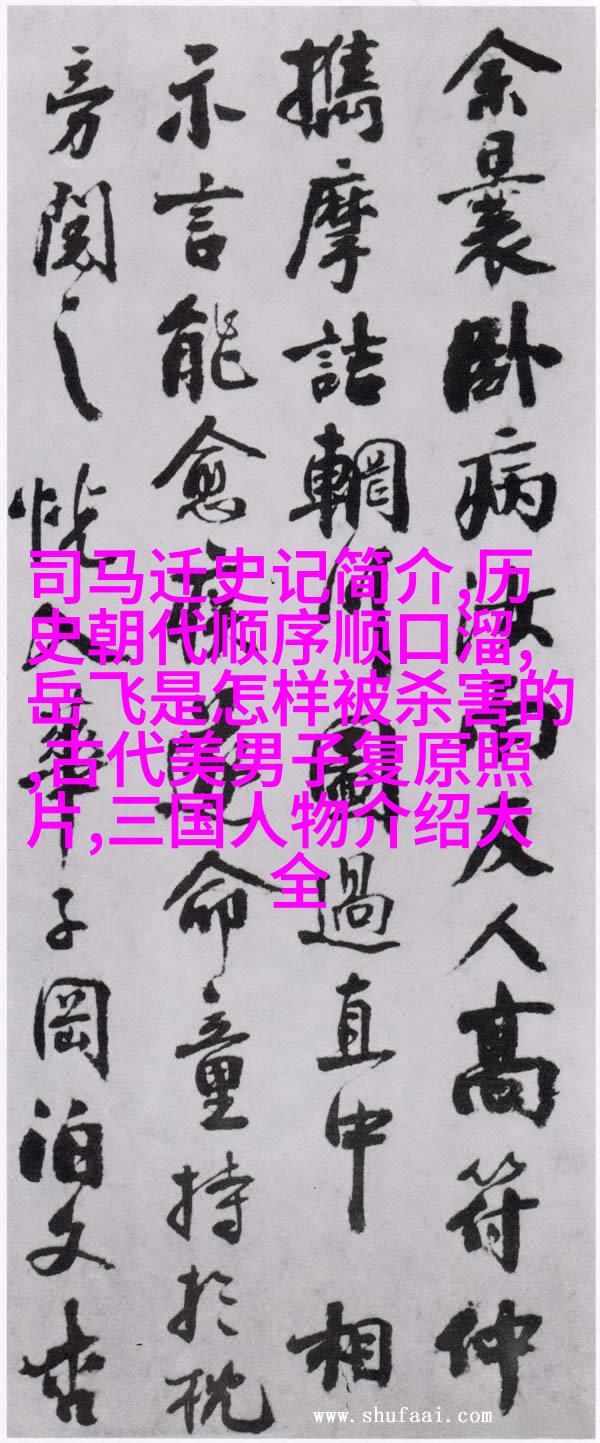 余曩卧病汝南友人高符仲
攜摩詰輞川圖過直中相
示言能愈命童持於枕
旁閱之恍入華子岡泊文杏
司马迁史记简介,历
史朝代顺序顺口溜,
岳飞是怎样被杀害的
,古代美男子复原照
片,三国人物介绍大
全
www.shufaai.com